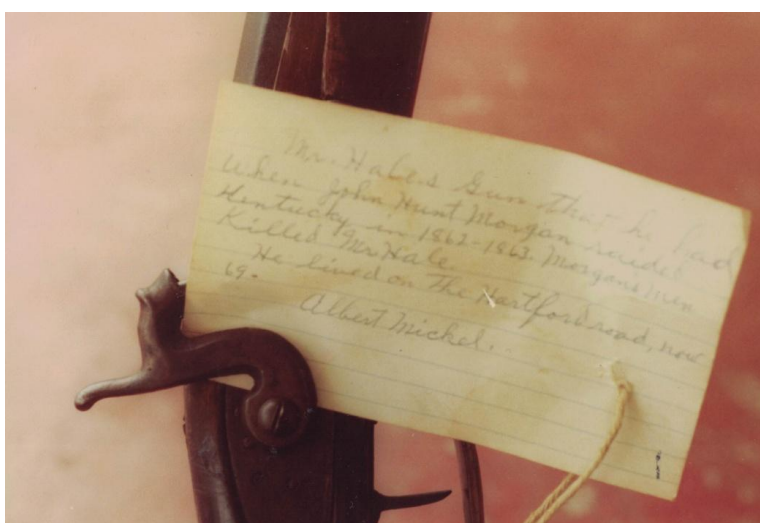 Mr. Hale's Gun that he had
When John Hunt Morgan raided
Kentucky in 1862-1863. Morgans Men
Killed Mr Hale.
He lived on The Hartford road, now
69.
Albert Mickel.